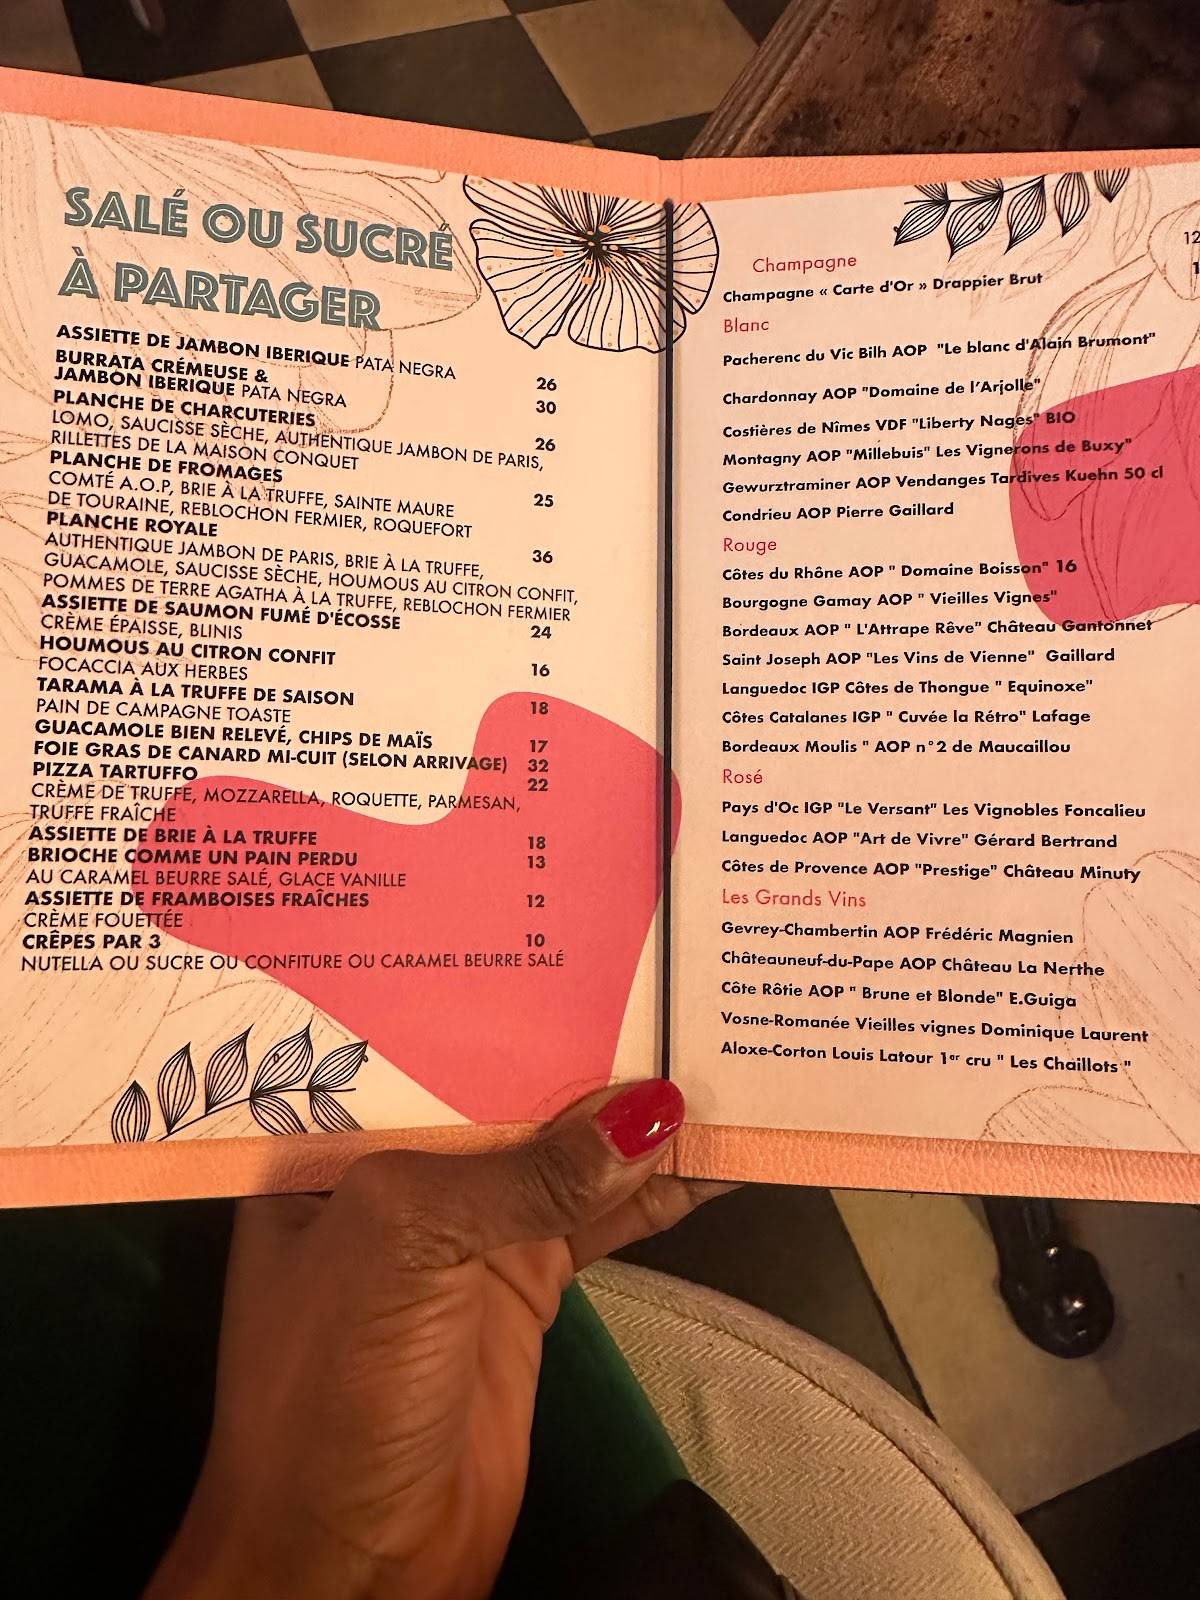 SALÉ OU SUCRÉ
À PARTAGER
ASSIETTE DE JAMBON IBERIQUE PATA NEGRA 26
BURRATA CRÉMEUSE &
JAMBON IBERIQUE PATA NEGRA 30
PLANCHE DE CHARCUTERIES 26
LOMO, SAUCISSE SÈCHE, AUTHENTIQUE JAMBON DE PARIS,
RILLETTES DE LA MAISON CONQUET
PLANCHE DE FROMAGES 25
COMTÉ A.O.P, BRIE À LA TRUFFE, SAINTE MAURE
DE TOURAINE, REBLOCHON FERMIER, ROQUEFORT
PLANCHE ROYALE 36
AUTHENTIQUE JAMBON DE PARIS, BRIE À LA TRUFFE,
GUACAMOLE, SAUCISSE SÈCHE, HOUMOUS AU CITRON CONFIT,
POMMES DE TERRE AGATHA À LA TRUFFE, REBLOCHON FERMIER
ASSIETTE DE SAUMON FUMÉ D'ÉCOSSE 24
CRÈME ÉPAISSE, BLINIS
HOUMOUS AU CITRON CONFIT 16
FOCACCIA AUX HERBES
TARAMA À LA TRUFFE DE SAISON 18
PAIN DE CAMPAGNE TOASTE
GUACAMOLE BIEN RELEVÉ, CHIPS DE MAÏS 17
FOIE GRAS DE CANARD MI-CUIT (SELON ARRIVAGE) 32
PIZZA TARTUFFO 22
CRÈME DE TRUFFE, MOZZARELLA, ROQUETTE, PARMESAN,
TRUFFE FRAÎCHE
ASSIETTE DE BRIE À LA TRUFFE 18
BRIOCHE COMME UN PAIN PERDU 13
AU CARAMEL BEURRE SALÉ, GLACE VANILLE
ASSIETTE DE FRAMBOISES FRAÎCHES 12
CRÈME FOUETTÉE
CRÊPES PAR 3 10
NUTELLA OU SUCRE OU CONFITURE OU CARAMEL BEURRE SALÉ
Champagne
Champagne « Carte d'Or » Drappier Brut
Blanc
Pacherenc du Vic Bilh AOP "Le blanc d'Alain Brumont"
Chardonnay AOP "Domaine de l'Arjolle"
Costières de Nîmes VDF "Liberty Nages" BIO
Montagny AOP "Millebuis" Les Vignerons de Buxy"
Gewurztraminer AOP Vendanges Tardives Kuehn 50 cl
Condrieu AOP Pierre Gaillard
Rouge
Côtes du Rhône AOP " Domaine Boisson" 16
Bourgogne Gamay AOP " Vieilles Vignes"
Bordeaux AOP " L'Attrape Rêve" Château Gantonnet
Saint Joseph AOP "Les Vins de Vienne" Gaillard
Languedoc IGP Côtes de Thongue " Equinoxe"
Côtes Catalanes IGP " Cuvée la Rétro" Lafage
Bordeaux Moulis " AOP n°2 de Maucaillou
Rosé
Pays d'Oc IGP "Le Versant" Les Vignobles Foncalieu
Languedoc AOP "Art de Vivre" Gérard Bertrand
Côtes de Provence AOP "Prestige" Château Minuty
Les Grands Vins
Gevrey-Chambertin AOP Frédéric Magnien
Châteauneuf-du-Pape AOP Château La Nerthe
Côte Rôtie AOP " Brune et Blonde" E.Guiga
Vosne-Romanée Vieilles vignes Dominique Laurent
Aloxe-Corton Louis Latour 1er cru " Les Chaillots "